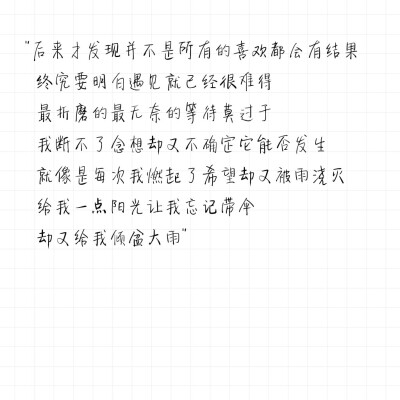 "后来才发现并不是所有的喜欢都会有结果
终究要明白遇见就已经很难得
最折磨的最无奈的等待莫过于
我断不了念想却又不确定它能否发生
就像是每次我燃起了希望却又被雨浇灭
给我一点阳光让我忘记带伞
却又给我倾盆大雨"